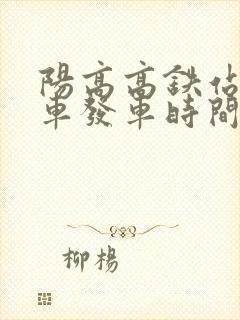 陽高高鉄佔
車發車時間
柳楊